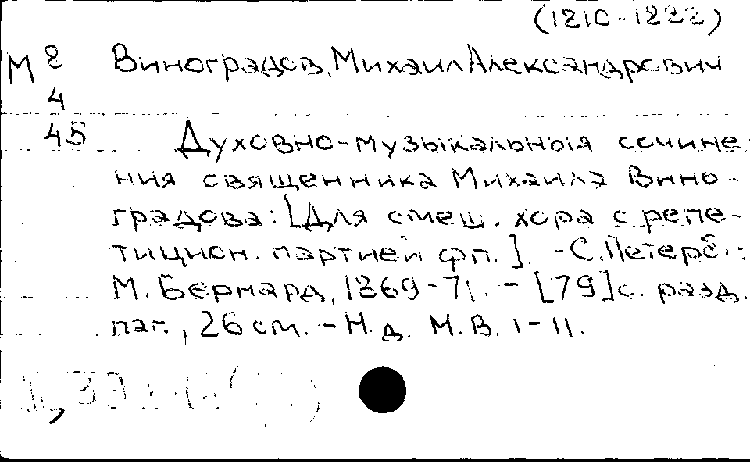 (1810-1888)
М 2 Виноградов, Михаил Александрович
4
45 Духовно-музыкальныя сочине
ния священника Михаила Вино-
градова: [Для смеш. хора с репе-
тицион. партией фп.]. -С.Петерб.:
М. Бернард, 1869-71. - [79]с. разд.
паг., 26 см. - Н.д. М.В. I-II.